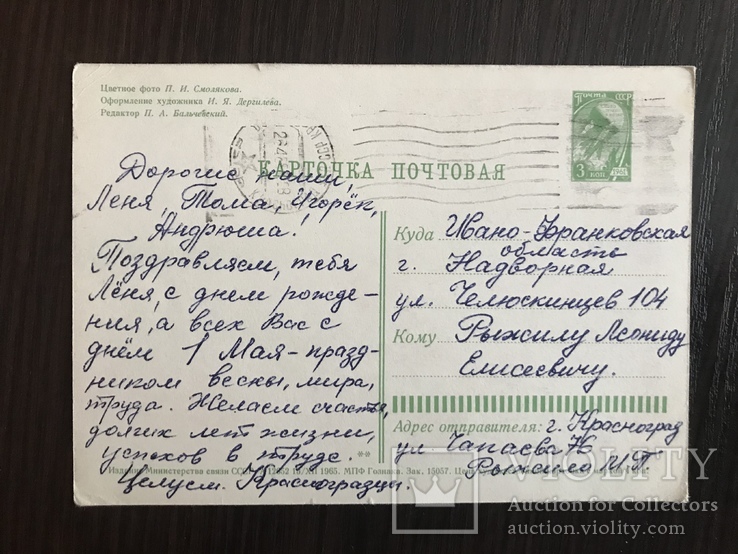 Цветное фото П. И. Смолякова.
Оформление художника И. Я. Дергилева.
Редактор П. А. Бальчевский.
ПОЧТА СССР
3 КОП
1961
КАРТОЧКА ПОЧТОВАЯ
Дорогие наши,
Леня, Тома, Игорёк,
Андрюша!
Поздравляем, тебя
Лёня, с днем рожде-
ния, а всех Вас с
днём 1 Мая - празд-
ником весны, мира,
труда. Желаем счастья,
долгих лет жизни,
успехов в труде. **
Целуем. Красноградцы.
Куда Ивано-Франковская
область
г. Надворная
ул. Челюскинцев 104
Кому Рыжилу Леониду
Елисеевичу.
Адрес отправителя: г. Красноград
ул Чапаева
Рыжила
Издание Министерства связи СССР 1965. МПФ Гознака. Зак. 15057.
VIOLITY
Auction for Collectors
auction.violity.com